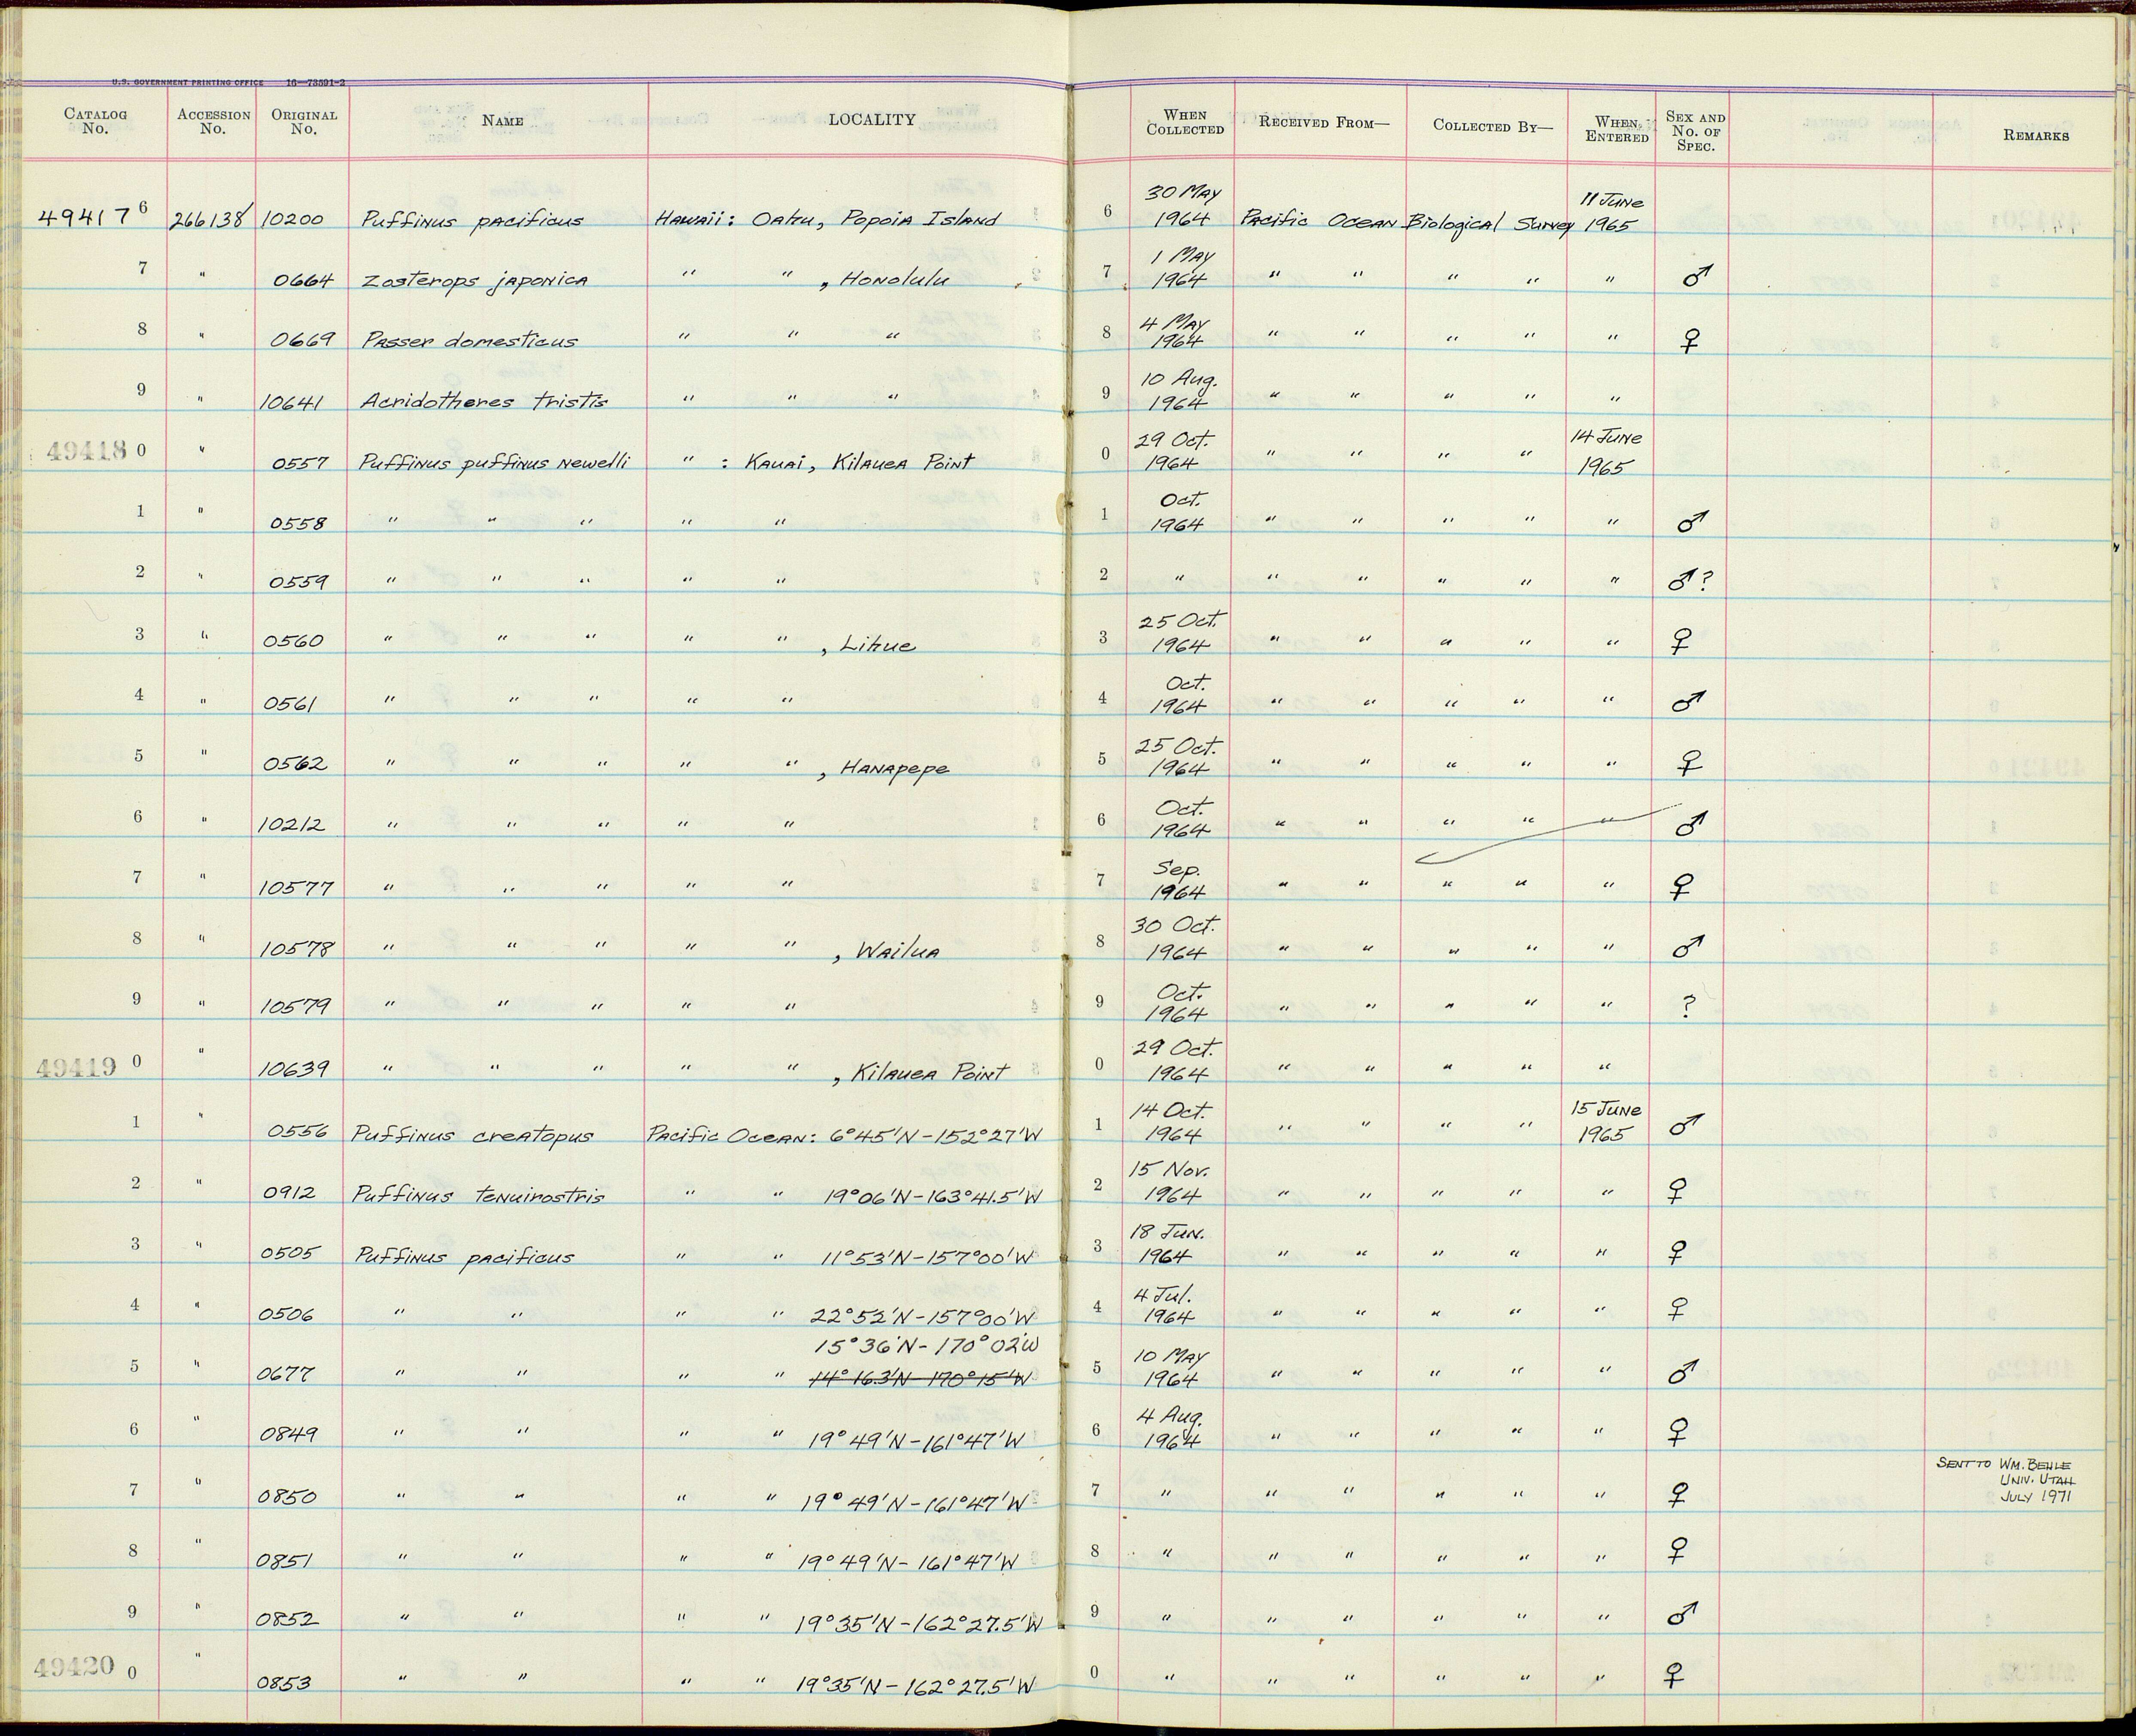 U.S. GOVERNMENT PRINTING OFFICE 16—73591-2
CATALOG No. ACCESSION No. ORIGINAL No. NAME LOCALITY WHEN COLLECTED RECEIVED FROM— COLLECTED BY— WHEN ENTERED SEX AND No. OF SPEC. REMARKS
494176 266138 10200 Puffinus pacificus Hawaii: Oahu, Popoia Island 6 30 May 1964 Pacific Ocean Biological Survey 11 June 1965
7 " 0664 Zosterops japonica " " , Honolulu 7 1 May 1964 " " " " " ♂
8 " 0669 Passer domesticus " " " 8 4 May 1964 " " " " " ♀
9 " 10641 Acridotheres tristis " " " 9 10 Aug. 1964 " " " " "
49418 0 " 0557 Puffinus puffinus newelli " : Kauai, Kilauea Point 0 29 Oct. 1964 " " " " 14 June 1965
1 " 0558 " " " " " 1 Oct. 1964 " " " " " ♂
2 " 0559 " " " " " 2 " " " " " " ♂?
3 " 0560 " " " " " , Lihue 3 25 Oct. 1964 " " " " " ♀
4 " 0561 " " " " " 4 Oct. 1964 " " " " " ♂
5 " 0562 " " " " " , Hanapepe 5 25 Oct. 1964 " " " " " ♀
6 " 10212 " " " " " 6 Oct. 1964 " " " " " ♂
7 " 10577 " " " " " 7 Sep. 1964 " " " " " ♀
8 " 10578 " " " " " , Wailua 8 30 Oct. 1964 " " " " " ♂
9 " 10579 " " " " " 9 Oct. 1964 " " " " " ?
49419 0 " 10639 " " " " " , Kilauea Point 0 29 Oct. 1964 " " " " "
1 " 0556 Puffinus creatopus Pacific Ocean: 6°45'N-152°27'W 1 14 Oct. 1964 " " " " 15 June 1965 ♂
2 " 0912 Puffinus tenuirostris " " 19°06'N-163°41.5'W 2 15 Nov. 1964 " " " " " ♀
3 " 0505 Puffinus pacificus " " 11°53'N-157°00'W 3 18 Jun. 1964 " " " " " ♀
4 " 0506 " " " " 22°52'N-157°00'W 4 4 Jul. 1964 " " " " " ♀
15°36'N-170°02'W
5 " 0677 " " " " 14°16.3'N-170°15'W 5 10 May 1964 " " " " " ♂
6 " 0849 " " " " 19°49'N-161°47'W 6 4 Aug. 1964 " " " " " ♀
7 " 0850 " " " " 19°49'N-161°47'W 7 " " " " " " ♀ SENT TO WM. BEHLE
UNIV. UTAH
JULY 1971
8 " 0851 " " " " 19°49'N-161°47'W 8 " " " " " " ♀
9 " 0852 " " " " 19°35'N-162°27.5'W 9 " " " " " " ♂
49420 0 " 0853 " " " " 19°35'N-162°27.5'W 0 " " " " " " ♀